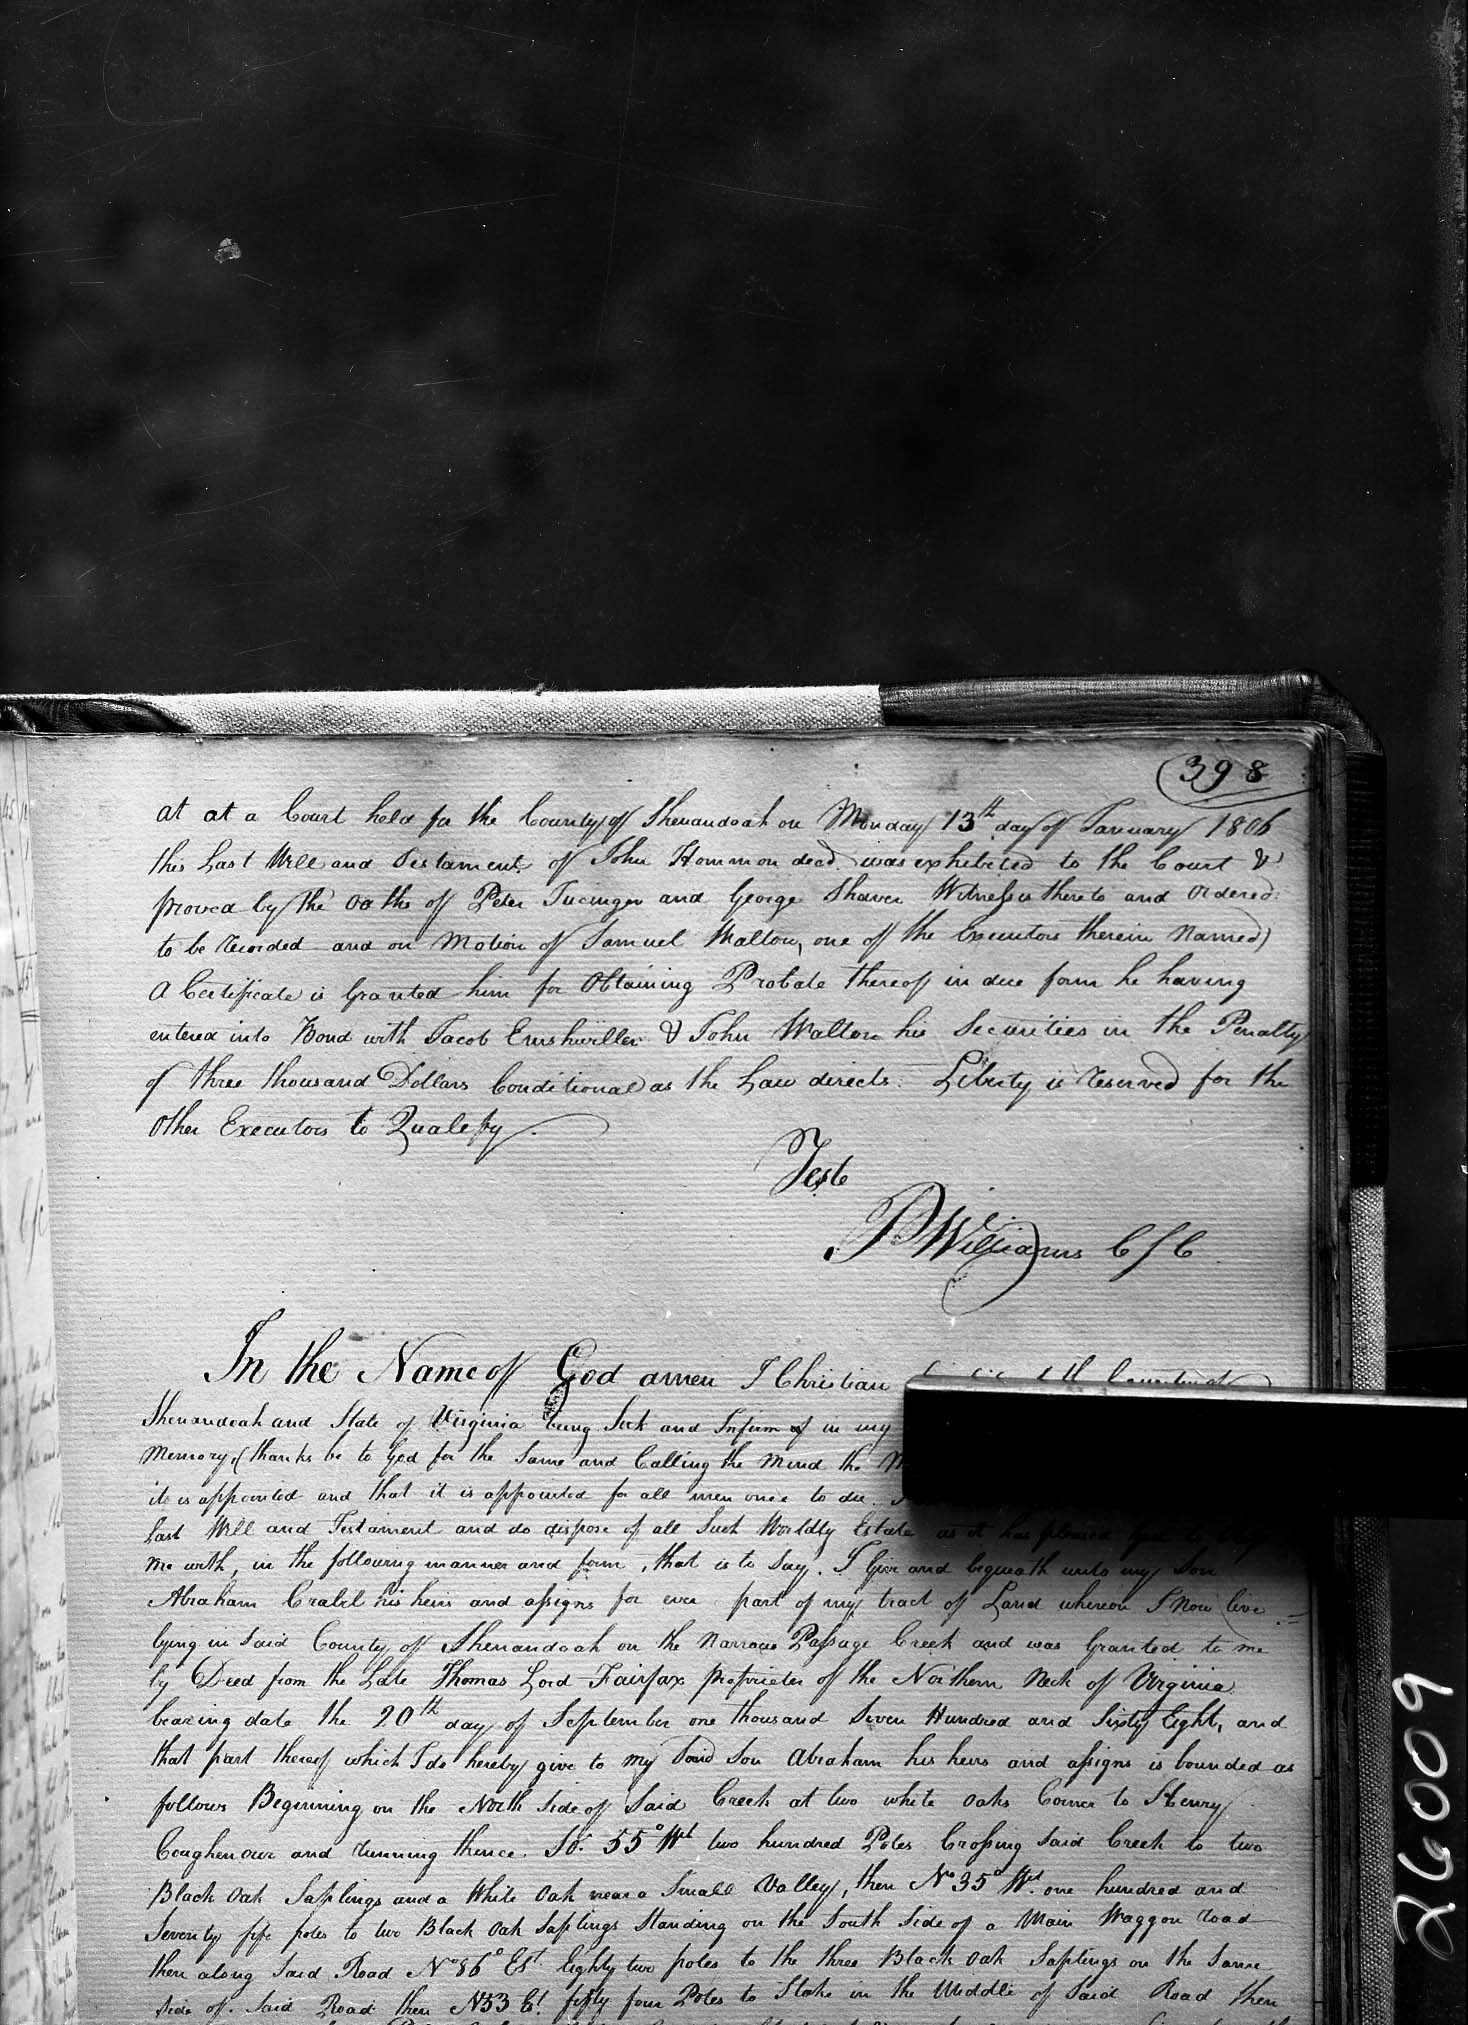 398
at at a Court held for the County of Shenandoah on Monday 13th day of January 1806
this Last Will and Testament of John Hommon decd. was exhibited to the Court &
proved by the Oaths of Peter and George Shaver Witnesses thereto and Ordered
to be recorded and on Motion of Samuel Walton, one of the Executors therein Named
A Certificate is Granted him for Obtaining Probate thereof in due form he having
entered into Bond with Jacob & John Walton his Securities in the Penalty
of three thousand Dollars Conditional as the Law directs. Liberty is reserved for the
other Executors to Qualify.
Teste
P Williams C S C
In the Name of God amen I Christian
Shenandoah and State of Virginia being Sick and Infirm in my
Memory, (thanks be to God for the Same and Calling the Mind the
it is appointed and that it is appointed for all men once to die.
Last Will and Testament and do dispose of all Such Worldly Estate as it has pleased
me with, in the following manner and form, that is to Say. I Give and bequeath unto my Son
Abraham Crabil his heirs and assigns for ever part of my tract of Land whereon I Now live
lying in Said County of Shenandoah on the Narrow Passage Creek and was Granted to me
by Deed from the Late Thomas Lord Fairfax proprietor of the Northern Neck of Virginia
bearing date the 20th day of September one thousand Seven Hundred and Sixty Eight, and
that part thereof which I do hereby give to my Said Son Abraham his heirs and assigns is bounded as
follows Beginning on the North Side of Said Creek at two white Oaks Corner to Henry
Coughenour and running thence. So. 55° Wt two hundred Poles Crossing Said Creek to two
Black Oak Saplings and a White Oak near a Small Valley, then No 35° Wt. one hundred and
Seventy five poles to two Black Oak Saplings Standing on the South Side of a Main Waggon road
then along Said Road No 86° Est Eighty two poles to the three Black Oak Saplings on the Same
Side of Said Road then N53 Et. fifty four Poles to Stake in the Middle of Said Road then
26009